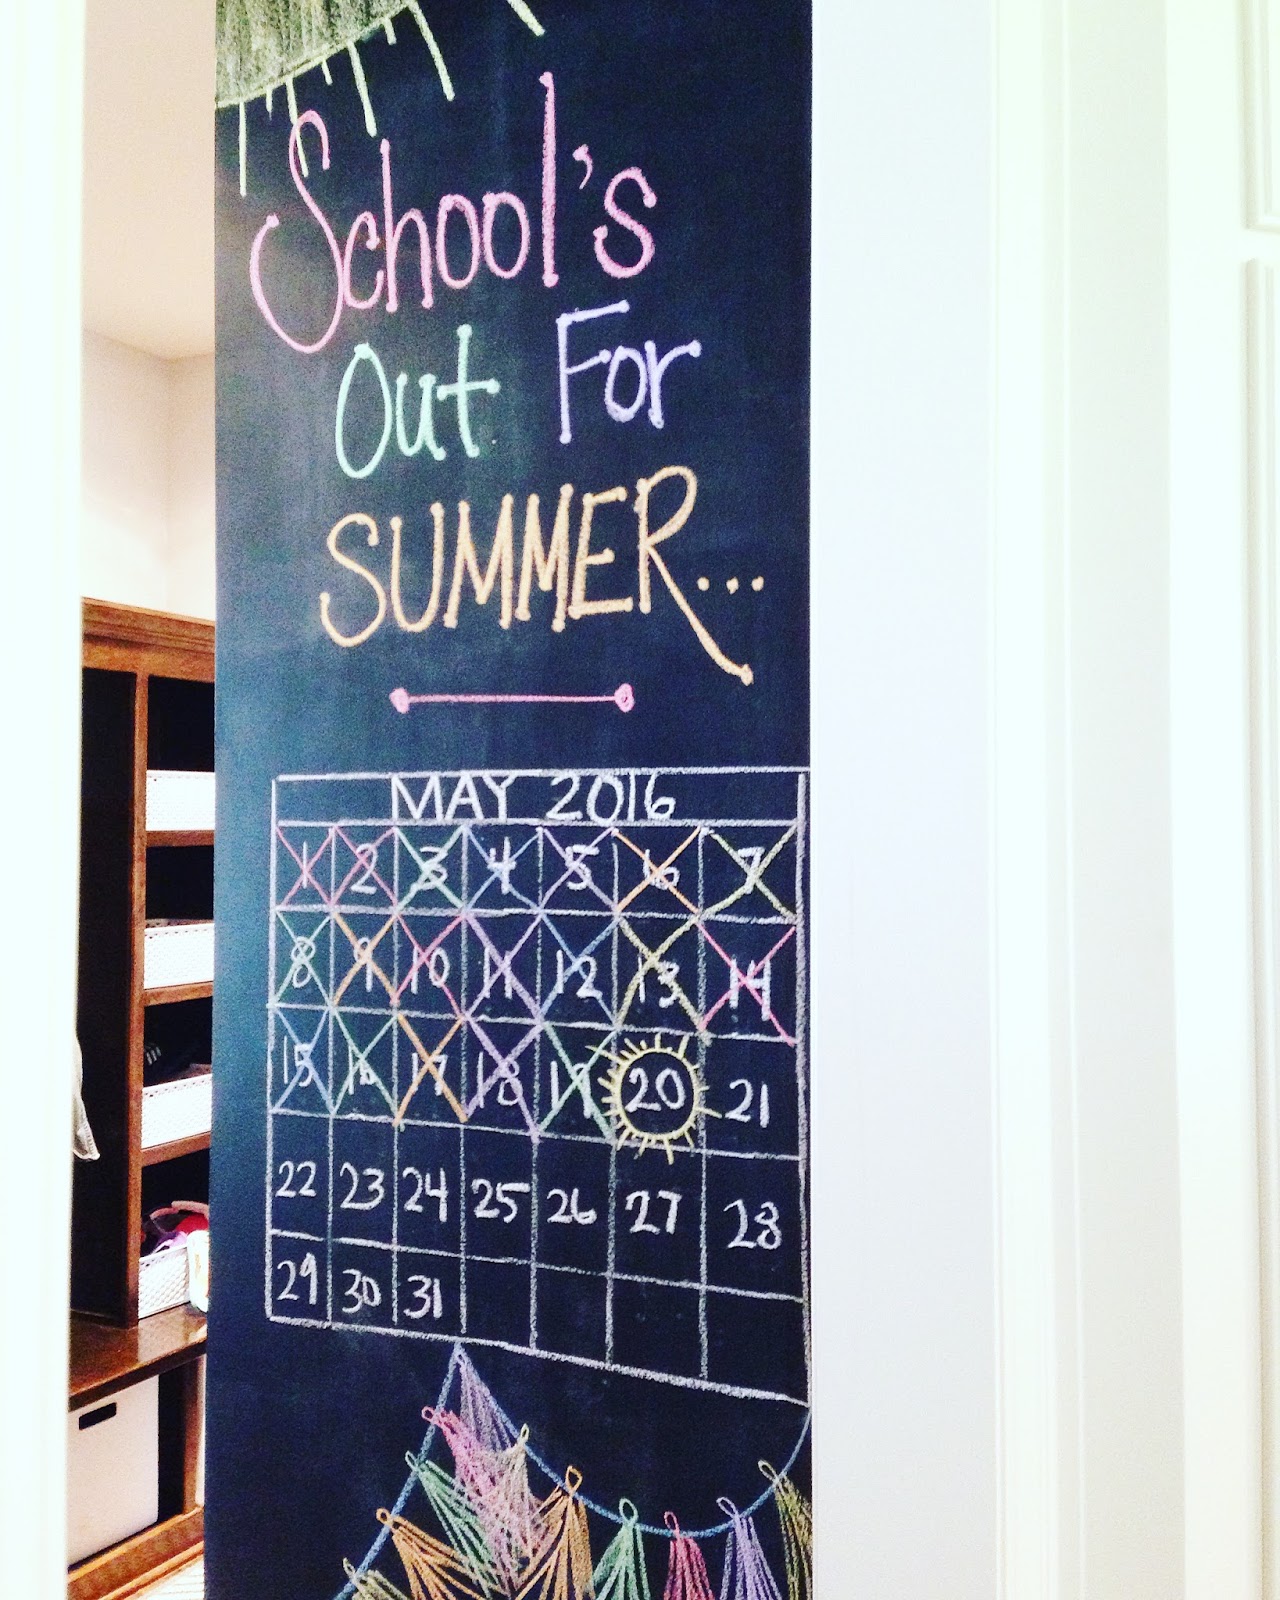 School's
Out For
SUMMER...
MAY 2016
1 2 3 4 5 6 7
8 9 10 11 12 13 14
15 16 17 18 19 20 21
22 23 24 25 26 27 28
29 30 31